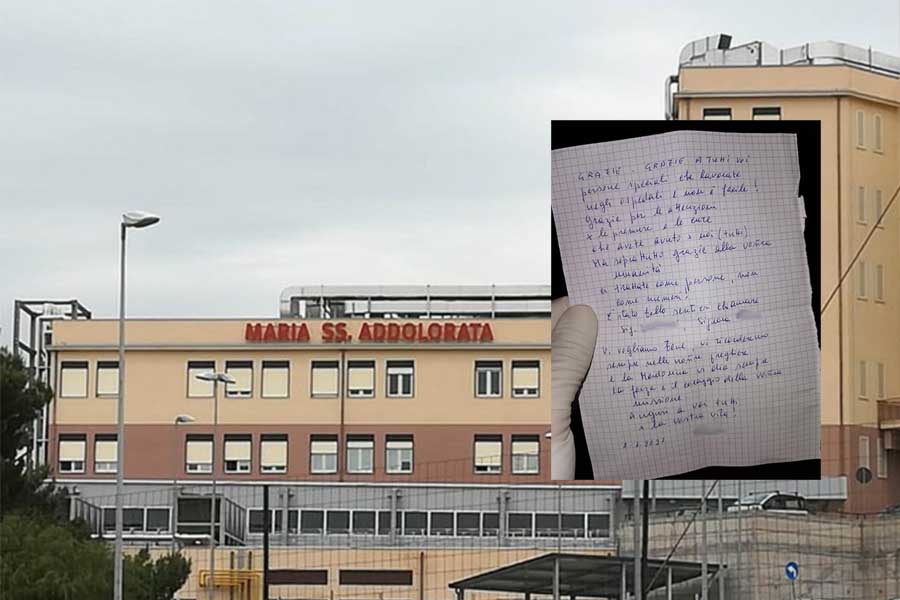 MARIA SS. ADDOLORATA
GRAZIE. GRAZIE A TUTTI voi
persone speciali che lavorate
negli ospedali e non è facile!
Grazie per le attenzioni
x le premure e le cure
che avete avuto x noi (tutti)
Ma sopratutto grazie alla vostra
umanità
ci trattate come persone, non
come numeri!
È stato bello sentirsi chiamare
sig. Signora
Vi vogliamo bene, vi ricorderemo
sempre nelle nostre preghiere
e la Madonna vi dia sempre
la forza e il coraggio della vostra
missione
Auguri a voi tutti
x la vostra vita!
2021